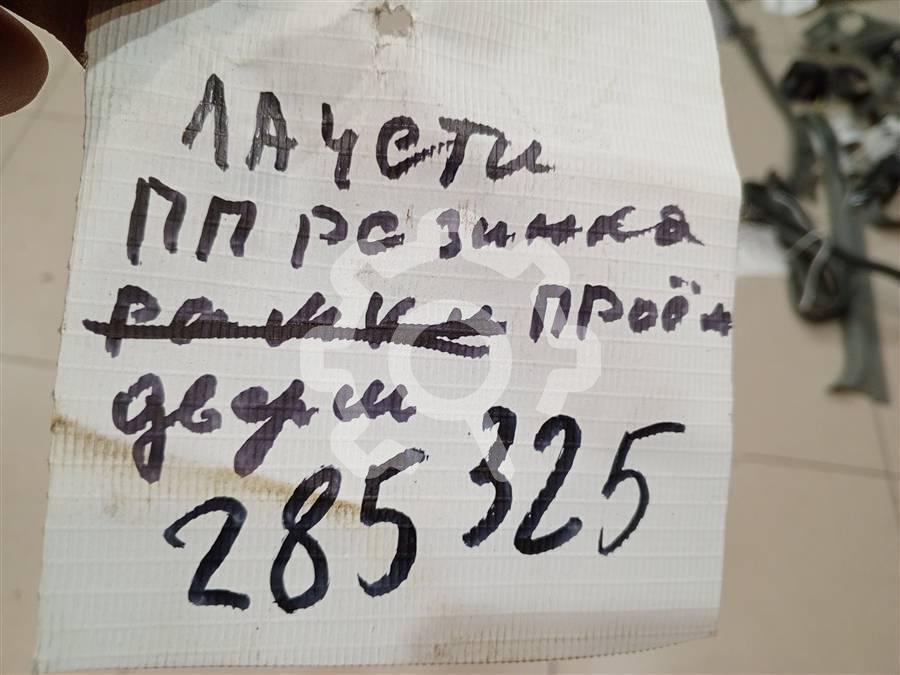 ЛАЧЕТИ
ПП резинка
рамки проём
двери
285325